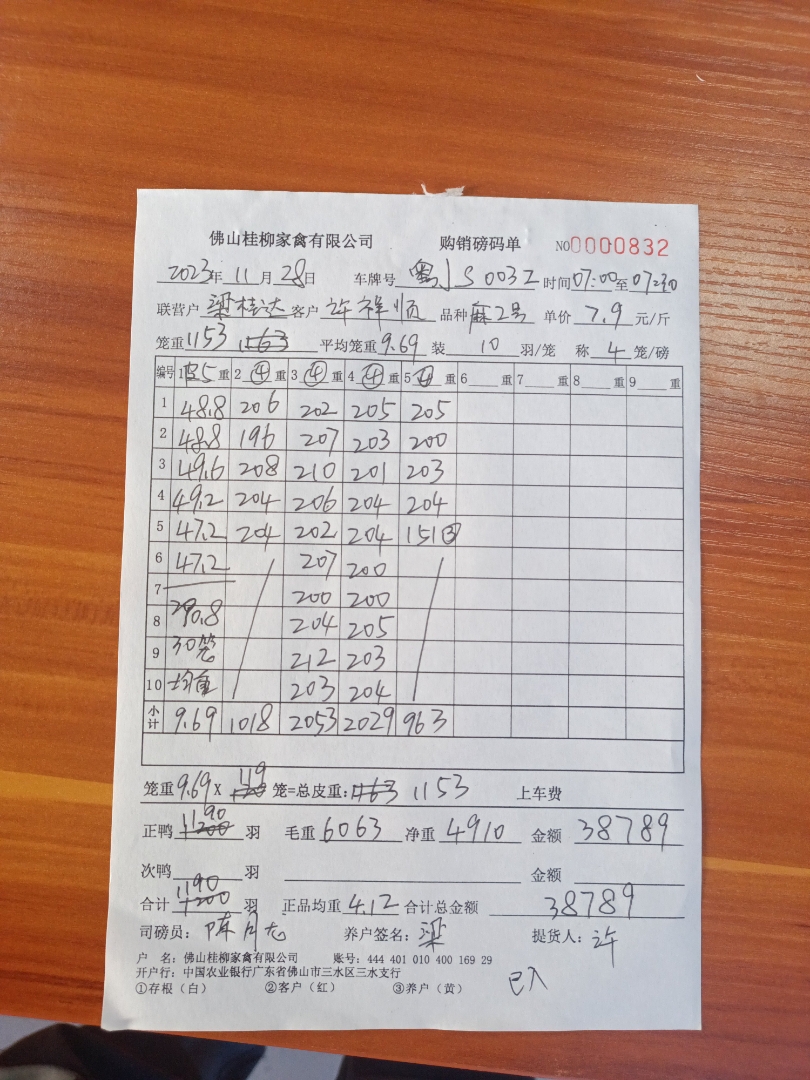 佛山桂柳家禽有限公司 购销磅码单 NO0000832
2023年 11月 28日 车牌号 粤JS0032 时间07:00至07:30
联营户 梁桂达 客户 许祥顺 品种 麻2号 单价 7.9 元/斤
笼重1153 1163 平均笼重9.69 装 10 羽/笼 称 4 笼/磅
编号 1 5 重 2 ④ 重 3 ④ 重 4 ④ 重 5 ④ 重 6 重 7 重 8 重 9 重
1 48.8 206 202 205 205
2 48.8 196 207 203 200
3 49.6 208 210 201 203
4 49.2 204 206 204 204
5 47.2 204 202 204 151③
6 47.2 207 200
7 200 200
8 290.8 204 205
9 30笼 212 203
10 均重 203 204
小计 9.69 1018 2053 2029 963
笼重9.69X 120 119 笼=总皮重: 1163 1153 上车费
正鸭 1200 1190 羽 毛重 6063 净重 4910 金额 38789
次鸭 羽 金额
合计 1200 1190 羽 正品均重 4.12 合计总金额 38789
司磅员: 陈 养户签名: 梁 提货人: 许
户 名: 佛山桂柳家禽有限公司 账号: 444 401 010 400 169 29
开户行: 中国农业银行广东省佛山市三水区三水支行
①存根(白) ②客户(红) ③养户(黄) 已入